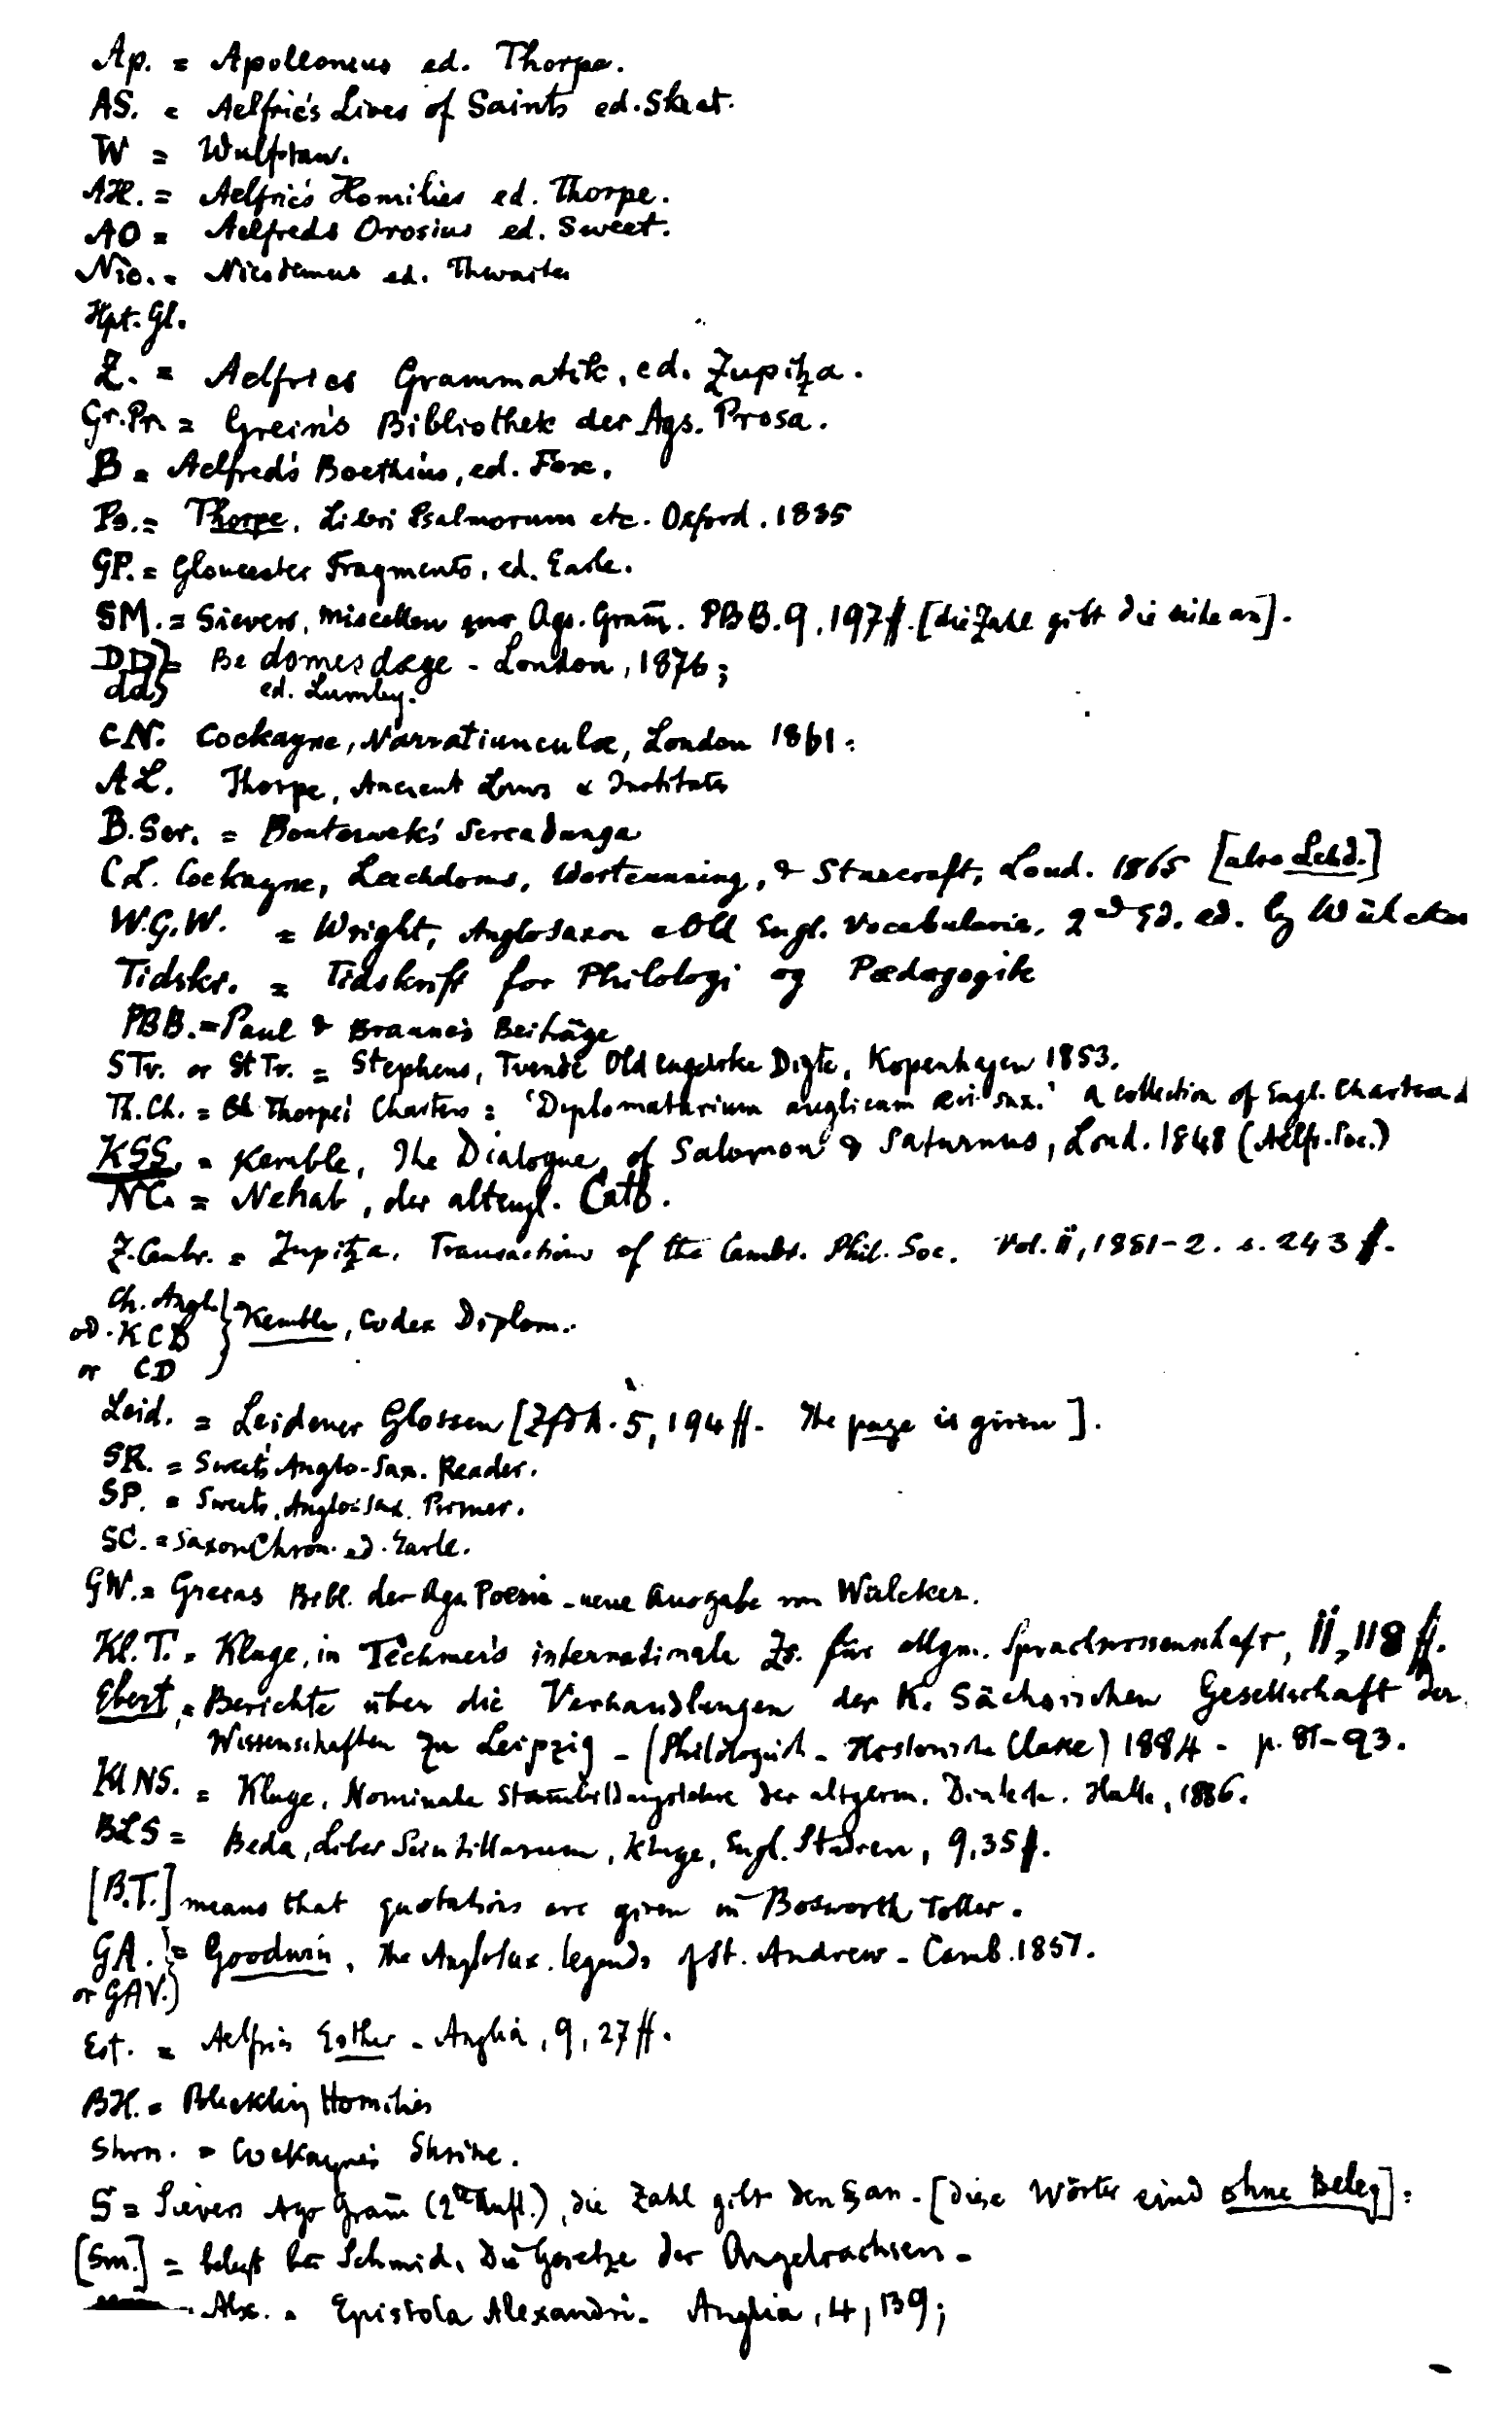 Ap. = Apollonius ed. Thorpe.
AS. = Aelfric's Lives of Saints ed. Skeat.
W = Wulfstan.
AH. = Aelfric's Homilies ed. Thorpe.
AO = Aelfreds Orosius ed. Sweet.
Nic. = Nicodemus ed. Thwaites
Hpt. Gl.
Z. = Aelfrics Grammatik, ed. Zupitza.
Gr. Pr. = Grein's Bibliothek der Ags. Prosa.
B = Aelfred's Boethius, ed. Fox.
Ps. = Thorpe, Libri Psalmorum etc. Oxford. 1835
GF. = Gloucester Fragments, ed. Earle.
SM. = Sievers, Miscellen zur Ags. Gram̄. PBB. 9, 197 ff. [die Zahl gibt die seite an].
DD } = Be domes dæge - London, 1876;
dd } ed. Lumby.
CN. Cockayne, Narratiunculæ, London 1861.
AL. Thorpe, Ancient Laws & Institutes
B. Scr. = Bouterwek's Screadunga
CL. Cockayne, Leechdoms, Wortcunning, & Starcraft, Lond. 1865 [also Lchd.]
W.G.W. = Wright, Anglosaxon & Old Engl. Vocabularies, 2nd Ed. ed. by Wülcker
Tidskr. = Tidskrift for Philologi og Pædagogik
PBB. = Paul & Braune's Beiträge
STv. or St Tv. = Stephens, Tvende Old engelske Digte, Kopenhagen 1853.
Th. Ch. = Thorpe's Charters = 'Diplomatarium anglicum ævi sax.' a collection of Engl. Charters
KSS. = Kemble, The Dialogue of Salomon & Saturnus, Lond. 1848 (Aelfr. Soc.)
NC. = Nehab, der altengl. Cato.
Z. Cambr. = Zupitza, Transactions of the Cambr. Phil. Soc. Vol. ii, 1881-2. s. 243 ff.
Ch. Angl. } = Kemble, Codex Diplom.
od. KCD
or CD
Leid. = Leidener Glossen [ZfdA. 5, 194 ff. The page is given].
SR. = Sweet's Anglo-Sax. Reader.
SP. = Sweet's Anglo-Sax. Primer.
SC. = Saxon Chron. ed. Earle.
GW. = Greins Bibl. der Ags Poesie - neue Ausgabe von Wülcker.
Kl. T. = Kluge, in Techmer's internationale Zs. für allgm. Sprachwissenschaft, ii, 118 ff.
Ebert, = Berichte über die Verhandlungen der K. Sächsischen Gesellschaft der
Wissenschaften zu Leipzig - (Philologisch - Historische Classe) 1884 - p. 81-93.
Kl NS. = Kluge, Nominale Stam̄bildungslehre der altgerm. Dialecte. Halle, 1886.
BLS = Beda, Liber Scintillarum, Kluge, Engl. Studien, 9, 35 f.
[B.T.] means that quotations are given in Bosworth Toller.
GA. } = Goodwin, The Anglosax. legends of St. Andrew - Camb. 1851.
or GAV. }
Est. = Aelfric's Esther - Anglia, 9, 27 ff.
BH. = Blickling Homilies
Shrn. = Cockayne's Shrine.
S = Sievers Ags Gram̄ (2te Aufl.), die Zahl gibt den § an. [diese Wörter sind ohne Beleg].
[Sm.] = belegt bei Schmid, Die Gesetze der Angelsachsen -
Alex. = Epistola Alexandri. Anglia, 4, 139;